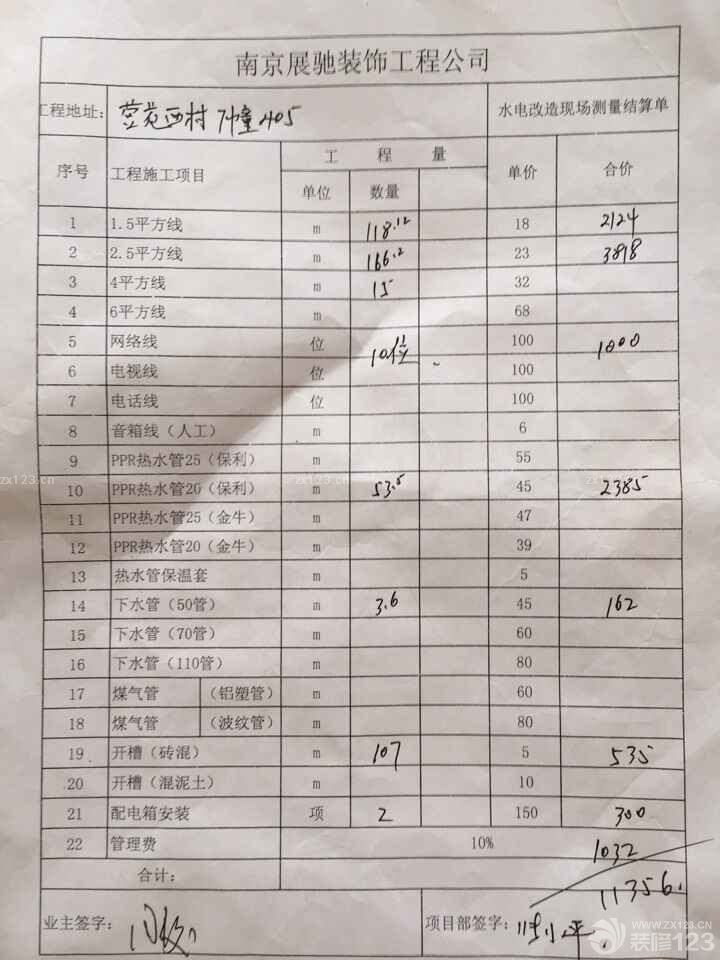 南京展驰装饰工程公司
工程地址: 苑西村 7幢405 水电改造现场测量结算单
序号 工程施工项目 工程量 单价 合价
单位 数量
1 1.5平方线 m 118.12 18 2124
2 2.5平方线 m 166.2 23 3818
3 4平方线 m 15 32
4 6平方线 m 68
5 网络线 位 10位 100 1000
6 电视线 位 100
7 电话线 位 100
8 音箱线（人工） m 6
9 PPR热水管25（保利） m 55
10 PPR热水管20（保利） m 53.5 45 2385
11 PPR热水管25（金牛） m 47
12 PPR热水管20（金牛） m 39
13 热水管保温套 m 5
14 下水管（50管） m 3.6 45 162
15 下水管（70管） m 60
16 下水管（110管） m 80
17 煤气管 （铝塑管） m 60
18 煤气管 （波纹管） m 80
19. 开槽（砖混） m 107 5 535
20 开槽（混泥土） m 10
21 配电箱安装 项 2 150 300
22 管理费 10% 1032
合计: 11356.
业主签字: 项目部签字:
zx123.cn
zx123.cn
zx123.cn
WWW.ZX123.CN
装修123